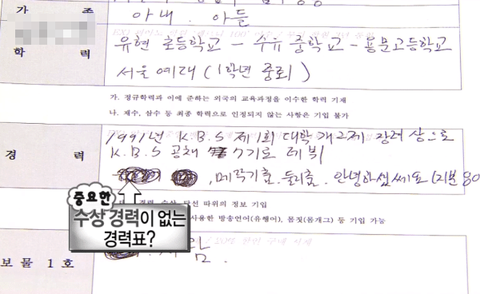 가 족
아내. 아들
학 력
유현 초등학교 - 수유 중학교 - 용문고등학교
서울예대 (1학년 중퇴)
가. 정규학력과 이에 준하는 외국의 교육과정을 이수한 학력 기재
나. 재수, 삼수 등 최종 학력으로 인정되지 않는 사항은 기입 불가
경 력
1991년 K.B.S 제1회 대학개그제 장려상으로
K.B.S 공채 7기로 데뷔
메기춤. 안녕하십쎄요
중요한
수상 경력이 없는
경력표?
수상, 당선 따위의 정보 기입
사용한 방송언어(유행어), 몸짓(몸개그) 등 기입 가능
보물 1호